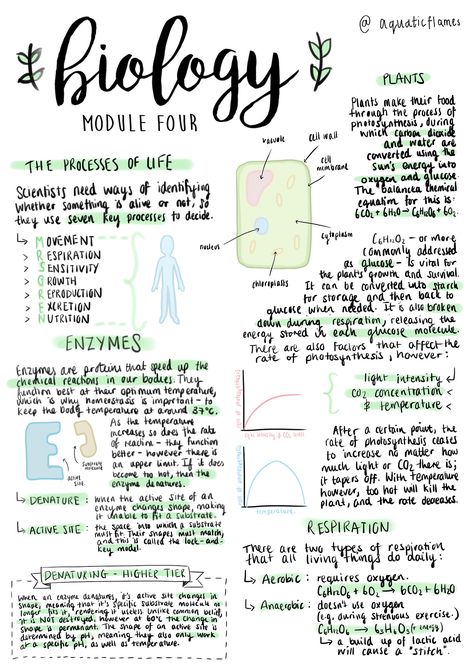 @ aquaticflames
biology
MODULE FOUR
THE PROCESSES OF LIFE
Scientists need ways of identifying
whether something is alive or not, so
they use seven key processes to decide.
MOVEMENT
RESPIRATION
SENSITIVITY
GROWTH
REPRODUCTION
EXCRETION
NUTRITION
ENZYMES
Enzymes are proteins that speed up the
chemical reactions in our bodies. They
function best at their optimum temperature,
which is why homeostasis is important - to
keep the body temperature at around 37°C.
As the temperature
increases so does the rate
of reaction - they function
better - however there is
an upper limit. If it does
become too hot, then the
enzyme denatures.
active
site
substrate
molecule
DENATURE: when the active site of an
enzyme changes shape, making
it unable to fit a substrate.
ACTIVE SITE: the space into which a substrate
must fit. Their shapes must match,
and this is called the lock-and-
key model.
DENATURING - HIGHER TIER
When an enzyme denatures, it's active site changes in
shape, meaning that it's specific substrate molecule no
longer fits it, rendering it useless. Unlike common belief,
it is NOT destroyed, however at 60°C the change in
shape is permanent. The shape of an active site is
determined by pH, meaning they also only work
at a specific pH, as well as temperature.
vacuole
cell wall
cell
membrane
cytoplasm
nucleus
chloroplasts
PLANTS
Plants make their food
through the process of
photosynthesis, during
which carbon dioxide
and water are
converted using the
sun's energy into
oxygen and glucose.
The balanced chemical
equation for this is:
6CO₂ + 6H₂O → C₆H₁₂O₆ + 6O₂
C₆H₁₂O₂ - or more
commonly addressed
as glucose - is vital for
the plants growth and survival.
It can be converted into starch
for storage and then back to
glucose when needed. It is also broken
down during respiration, releasing the
energy stored in each glucose molecule.
There are also factors that affect the
rate of photosynthesis, however:
light intensity
CO₂ concentration
& temperature
light intensity & CO₂ levels
temperature
After a certain point, the
rate of photosynthesis ceases
to increase no matter how
much light or CO₂ there is;
it tapers off. With temperature
however, too hot will kill the
plant, and the rate decreases.
RESPIRATION
There are two types of respiration
that all living things do daily:
Aerobic: requires oxygen.
C₆H₁₂O₆ + 6O₂ → 6CO₂ + 6H₂O
Anaerobic: doesn't use oxygen
(e.g. during strenuous exercise.)
C₆H₁₂O₆ → C₃H₆O₃ (+ energy)
a build up of lactic acid
will cause a "stitch".